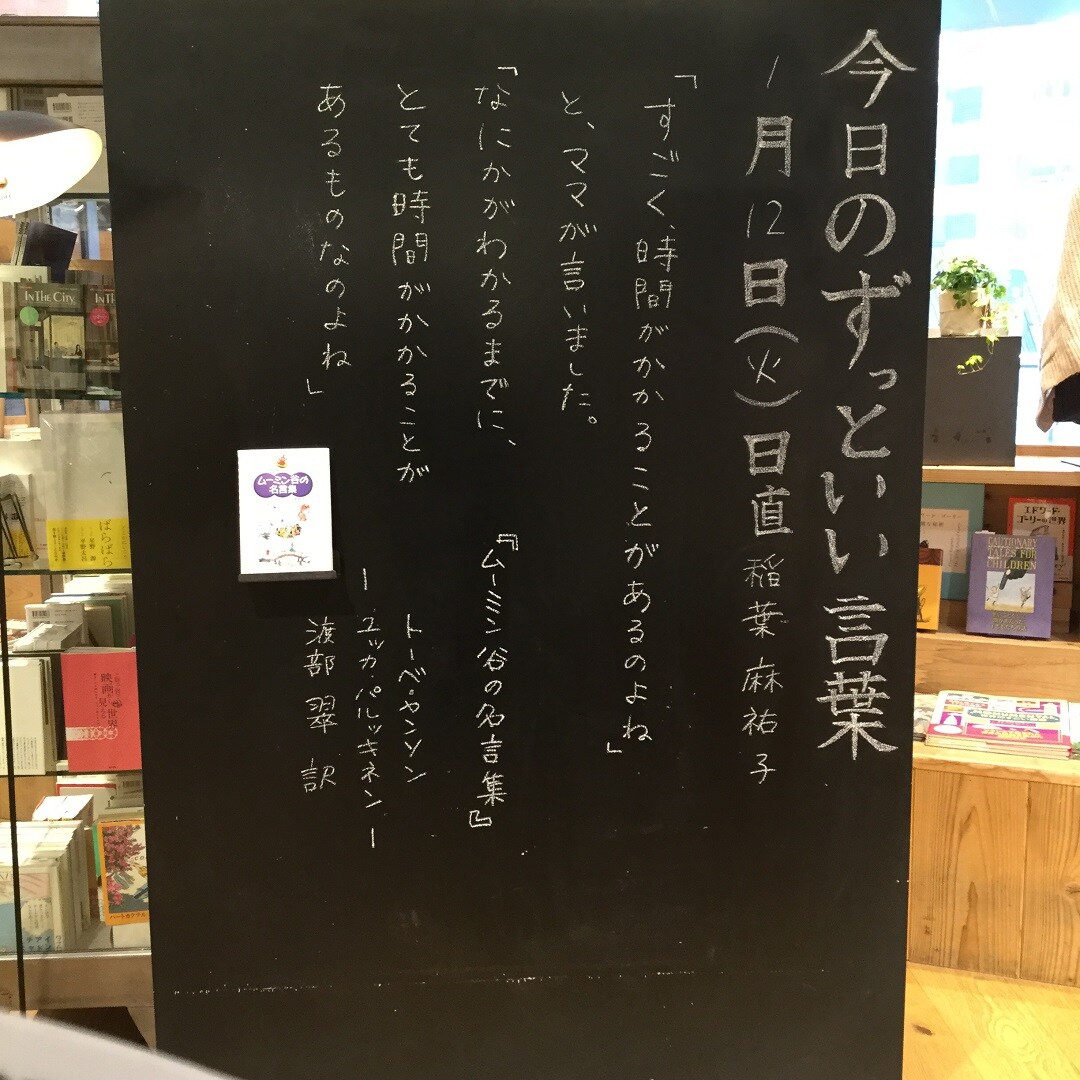 今日のずっといい言葉
1月12日(火)日直 稲葉麻祐子
「すごく、時間がかかることがあるのよね」
と、ママが言いました。
「なにかがわかるまでに、
とても時間がかかることが
あるものなのよね」
『ムーミン谷の名言集』
トーベ・ヤンソン
ー ユッカ・パルッキネン ー
渡部翠 訳
ムーミン谷の
名言集
IN THE CITY
IN TH
ばらばら
映画の
世界
エドワード・
ゴーリーの世界
CAUTIONARY
TALES FOR
CHILDREN